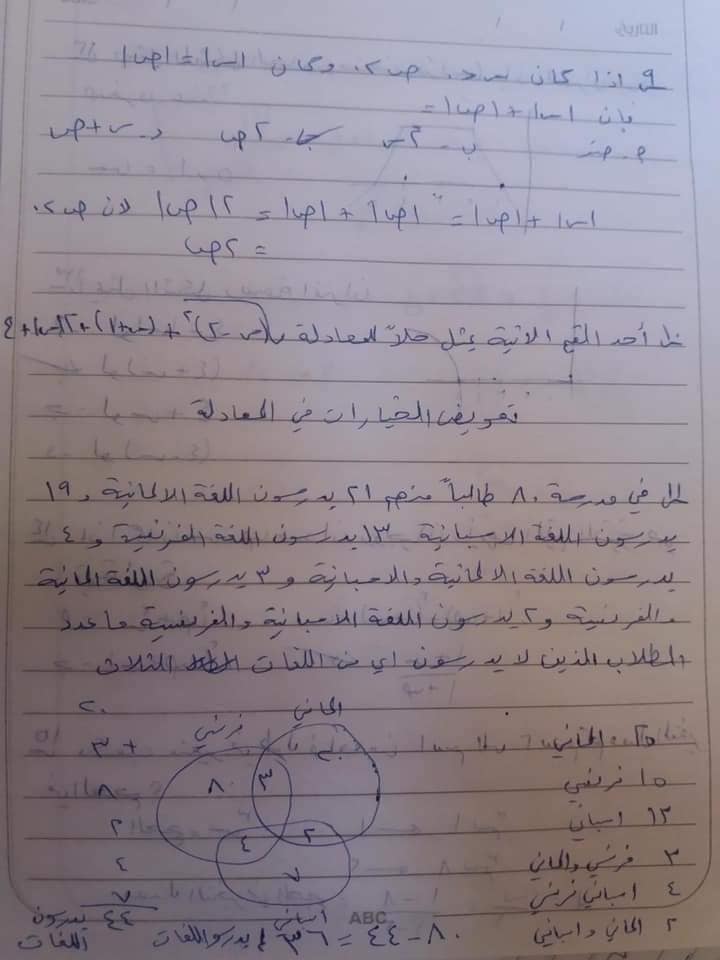 التاريخ / /
س٩ اذا كان س>٠، ص>٠ وكان |س| = |ص|
فإن |س| + |ص| =
م. صفر ب- ٢س ج- ٢ص د- س+ص
|س| + |ص| = |ص| + |ص| = ٢|ص| لان ص>٠
= ٢ص
أحد القيم الاتية يمثل حلاً للمعادلة
تعويض الخيارات في المعادلة
في مدرسة ٨٠ طالباً منهم ٢١ يدرسون اللغة الالمانية و ١٩
يدرسون اللغة الاسبانية ١٣ يدرسون اللغة الفرنسية و ٤
يدرسون اللغة الالمانية والاسبانية و ٣ يدرسون اللغة المانية
والفرنسية و ٢ يدرسون اللغة الاسبانية والفرنسية ما عدد
الطلاب الذين لا يدرسون اي من اللغات الثلاث
الماني ٢٠
٢٥ الماني فرنسي + ٣
١٥ فرنسي ٣ ٨ ٨
١٣ اسباني ٢ ٤ ٢
٣ فرنسي والماني ٧ ٤
٤ اسباني فرنسي ٧
٢ الماني واسباني اسباني ٤٤ يدرسون
٨٠ - ٤٤ = ٣٦ لم يدرسو اللغات اللغات
ABC